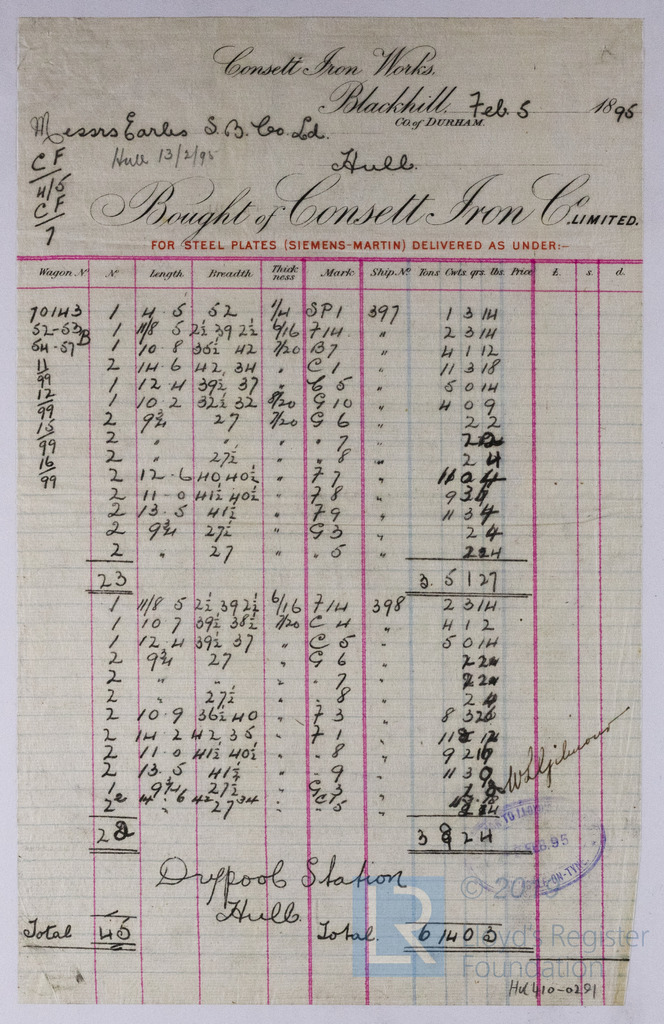 Consett Iron Works,
Blackhill, Feb 5 1895
CO. of DURHAM.
Messrs Earles S.B. Co. Ld.
Hull 13/2/95
Hull.
CF
4/5
CF
7
Bought of Consett Iron Co. LIMITED.
FOR STEEL PLATES (SIEMENS-MARTIN) DELIVERED AS UNDER:-
Wagon No No Length Breadth Thickness Mark Ship No Tons Cwts qrs. lbs. Price £ s. d.
70143 1 4 . 5 52 1/4 SP1 397 1 3 14
52-53 B 1 11/8 5 2½ 39 2½ 6/16 F14 " 2 3 14
54-57 1 10 . 8 35½ 42 7/20 B7 " 4 1 12
11/99 2 14 . 6 42 . 34 " C1 " 11 3 18
1 12 . 4 39½ 37 " C5 " 5 0 14
12/99 1 10 . 2 32½ 32 8/20 G10 " 4 0 9
15/99 2 9¾ 27 7/20 G6 " 2 2
2 " " " " 7 "
16/99 2 " 27½ " " 8 " 2 4
2 12 . 6 40 40½ " F7 " 11 0 4
2 11 . 0 41½ 40½ " F8 " 9 3
2 13 . 5 41½ " F9 " 11 3 4
2 9¾ 27½ " G3 " 2 4
2 " 27 " " 5 "
23 3 . 5 1 27
1 11/8 5 2½ 39 2½ 6/16 F14 398 2 3 14
1 10 7 39½ 38½ 7/20 C4 " 4 1 2
1 12 . 4 39½ 37 " C5 " 5 0 14
2 9¾ 27 " G6 "
2 " " " " 7 "
2 " 27½ " " 8 " 2 4
2 10 . 9 36½ 40 " F3 " 8 3
2 14 . 2 42 . 35 " F1 "
2 11 . 0 41½ 40½ " " 8 " 9
2 13 . 5 41½ " " 9 " 11 3 0
9¾ 27½ " G3 "
27 " " 5 "
3 8 2 4
W L Gilmour
FEB. 95
-ON-TYNE
Drypool Station
Hull
Total 45 Total. 6 14 0 3
LR
© 20
Lloyd's Register
Foundation
HUL410-0291